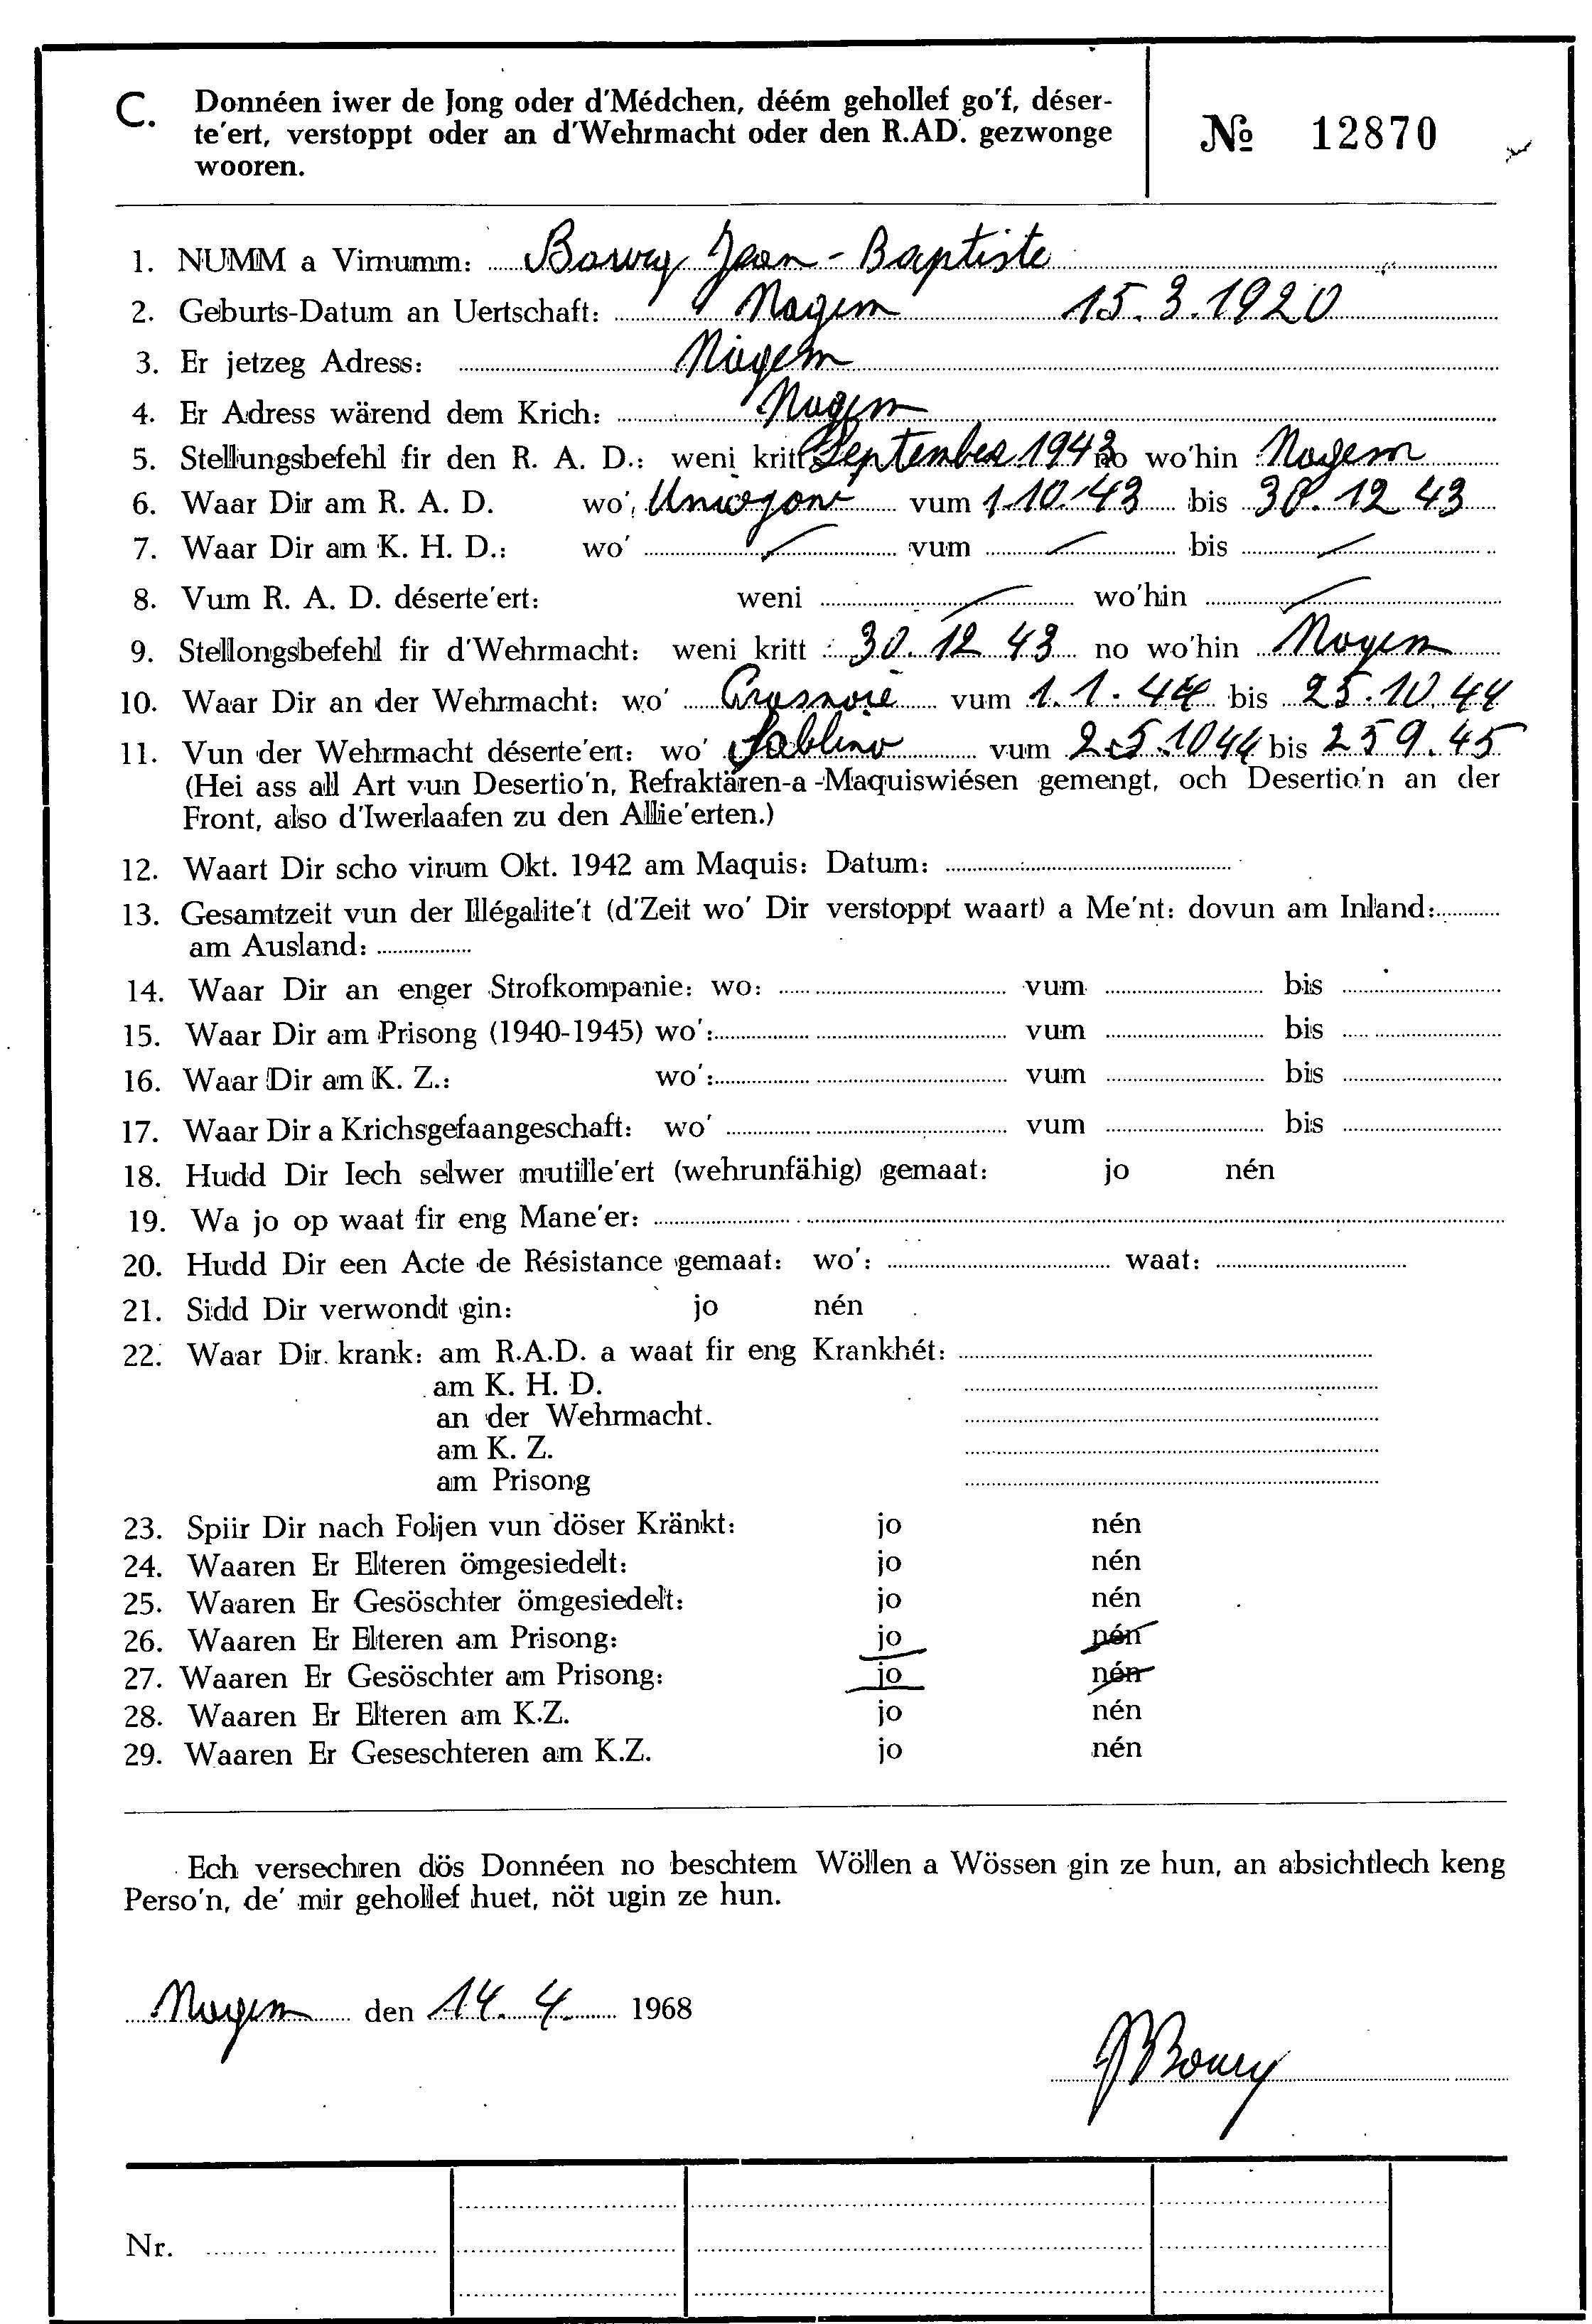 C. Donnéen iwer de Jong oder d'Médchen, déém gehollef go'f, déser-
te'ert, verstoppt oder an d'Wehrmacht oder den R.AD. gezwonge
wooren.
№ 12870
1. NUMM a Virnumm: Boury Jean-Baptiste
2. Geburts-Datum an Uertschaft: Nagem 15.3.1920
3. Er jetzeg Adress: Nagem
4. Er Adress wärend dem Krich: Nagem
5. Stellungsbefehl fir den R. A. D.: weni kritt September 1943 no wo'hin Nagem
6. Waar Dir am R. A. D. wo' vum 1.10.43 bis 30.12 43
7. Waar Dir am K. H. D.: wo' vum bis
8. Vum R. A. D. déserte'ert: weni wo'hin
9. Stellongsbefehl fir d'Wehrmacht: weni kritt 30.12 43 no wo'hin Nagem
10. Waar Dir an der Wehrmacht: wo' vum 1.1.44 bis 25.10.44
11. Vun der Wehrmacht déserte'ert: wo' Sablino vum 25.1044 bis 259.45
(Hei ass all Art vun Desertio'n, Refraktären-a-Maquiswiésen gemengt, och Desertio'n an der
Front, also d'Iwerlaafen zu den Allie'erten.)
12. Waart Dir scho virum Okt. 1942 am Maquis: Datum:
13. Gesamtzeit vun der Illégalite't (d'Zeit wo' Dir verstoppt waart) a Me'nt: dovun am Inland:
am Ausland:
14. Waar Dir an enger Strofkompanie: wo: vum bis
15. Waar Dir am Prisong (1940-1945) wo': vum bis
16. Waar Dir am K. Z.: wo': vum bis
17. Waar Dir a Krichsgefaangeschaft: wo' vum bis
18. Hudd Dir Iech selwer mutille'ert (wehrunfähig) gemaat: jo nén
19. Wa jo op waat fir eng Mane'er:
20. Hudd Dir een Acte de Résistance gemaat: wo': waat:
21. Sidd Dir verwondt gin: jo nén
22. Waar Dir krank: am R.A.D. a waat fir eng Krankhét:
am K. H. D.
an der Wehrmacht.
am K. Z.
am Prisong
23. Spiir Dir nach Foljen vun döser Kränkt: jo nén
24. Waaren Er Elteren ömgesiedelt: jo nén
25. Waaren Er Gesöschter ömgesiedelt: jo nén
26. Waaren Er Elteren am Prisong: jo nén
27. Waaren Er Gesöschter am Prisong: jo nén
28. Waaren Er Elteren am K.Z. jo nén
29. Waaren Er Geseschteren am K.Z. jo nén
Ech versechren dös Donnéen no beschtem Wöllen a Wössen gin ze hun, an absichtlech keng
Perso'n, de' mir gehollef huet, nöt ugin ze hun.
Nagem den 14.4. 1968
JBoury
Nr.